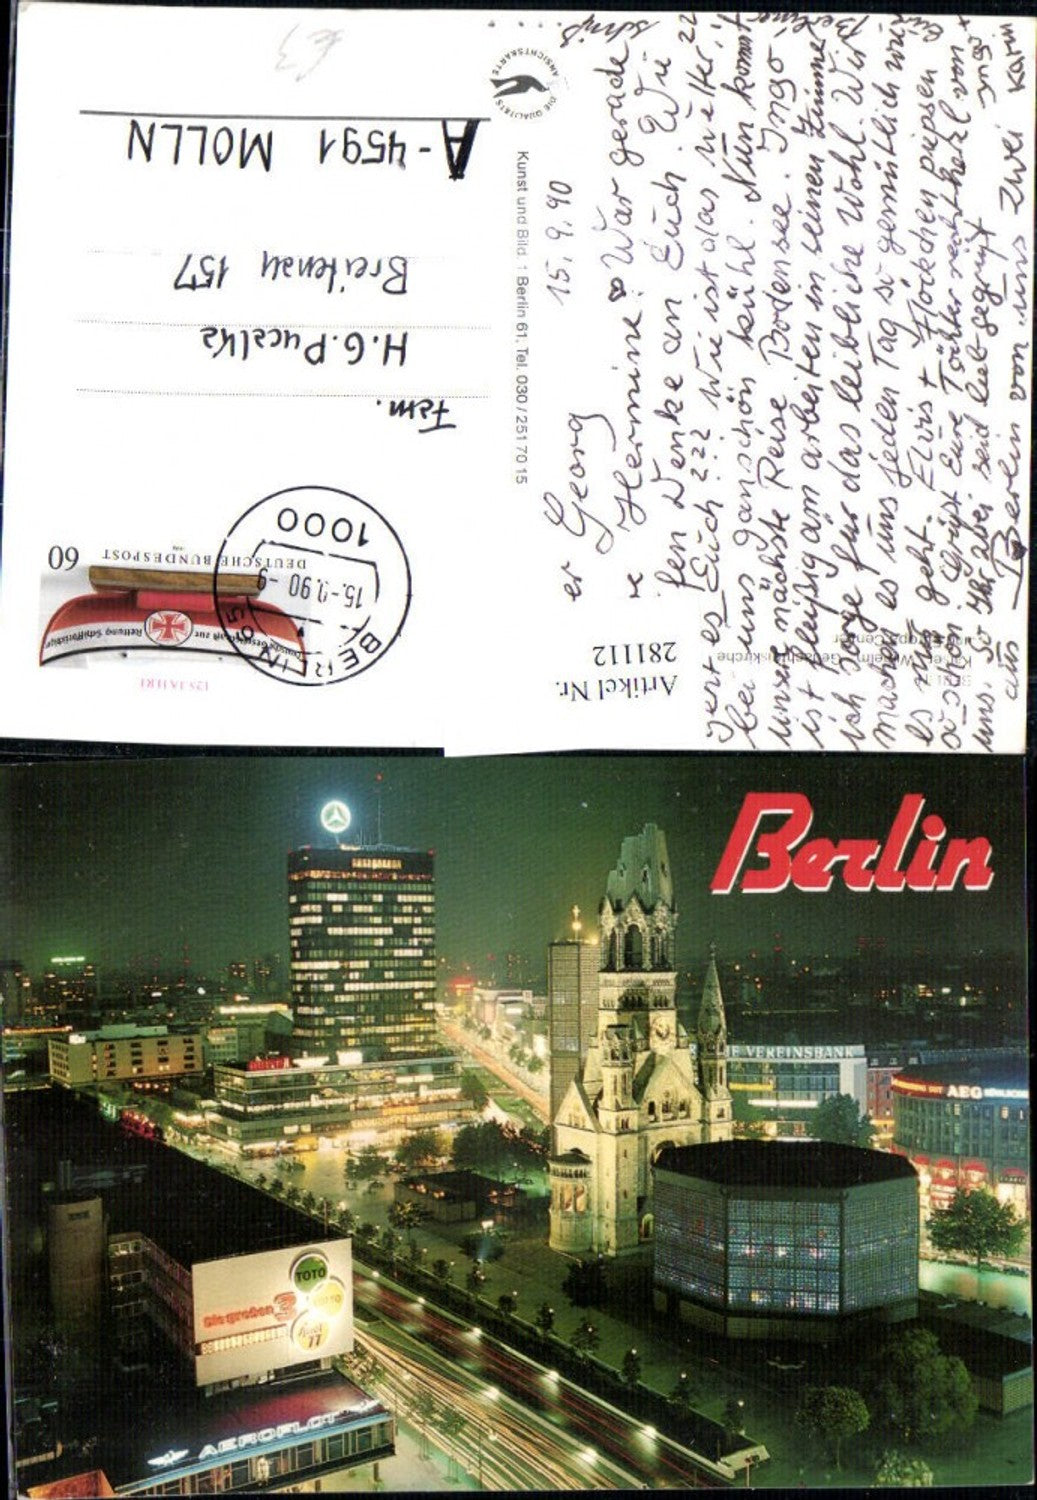 15.9.90
Georg
Hermine! War gerade
Denke an Euch. Wie
jert es Euch??? Wie ist das Wetter?
bei uns ganschön kühl. Nun kommt
unsere nächste Reise Bodensee. Ingo
ist fleißig am arbeiten in seinen Zimmer
ich sorge für das leibliche Wohl. Wir
machen es uns jeden Tag so gemütlich wie
es nur geht. Elvis + Flöckchen piepsen
schön Grüßt Eure Töchter recht herzl. von
uns. So Ihr aber seid lieb gegrüßt
aus Berlin von uns zwei Karin
Ingo +
Kunst und Bild 1 Berlin 61, Tel. 030 / 251 70 15
DIE QUALITÄTS ANSICHTSKARTE
Artikel Nr.
281112
125 JAHRE
Deutsche Gesellschaft zur Rettung Schiffbrüchiger
DEUTSCHE BUNDESPOST
60
BERLIN 05
15.-9.90-9
1000
Fam.
H.G. Puczlka
Breitenau 157
A-4591 MOLLN
Berlin
VEREINSBANK
AEG
TOTO
LOTTO
Die großen 3
77
AEROFLOT